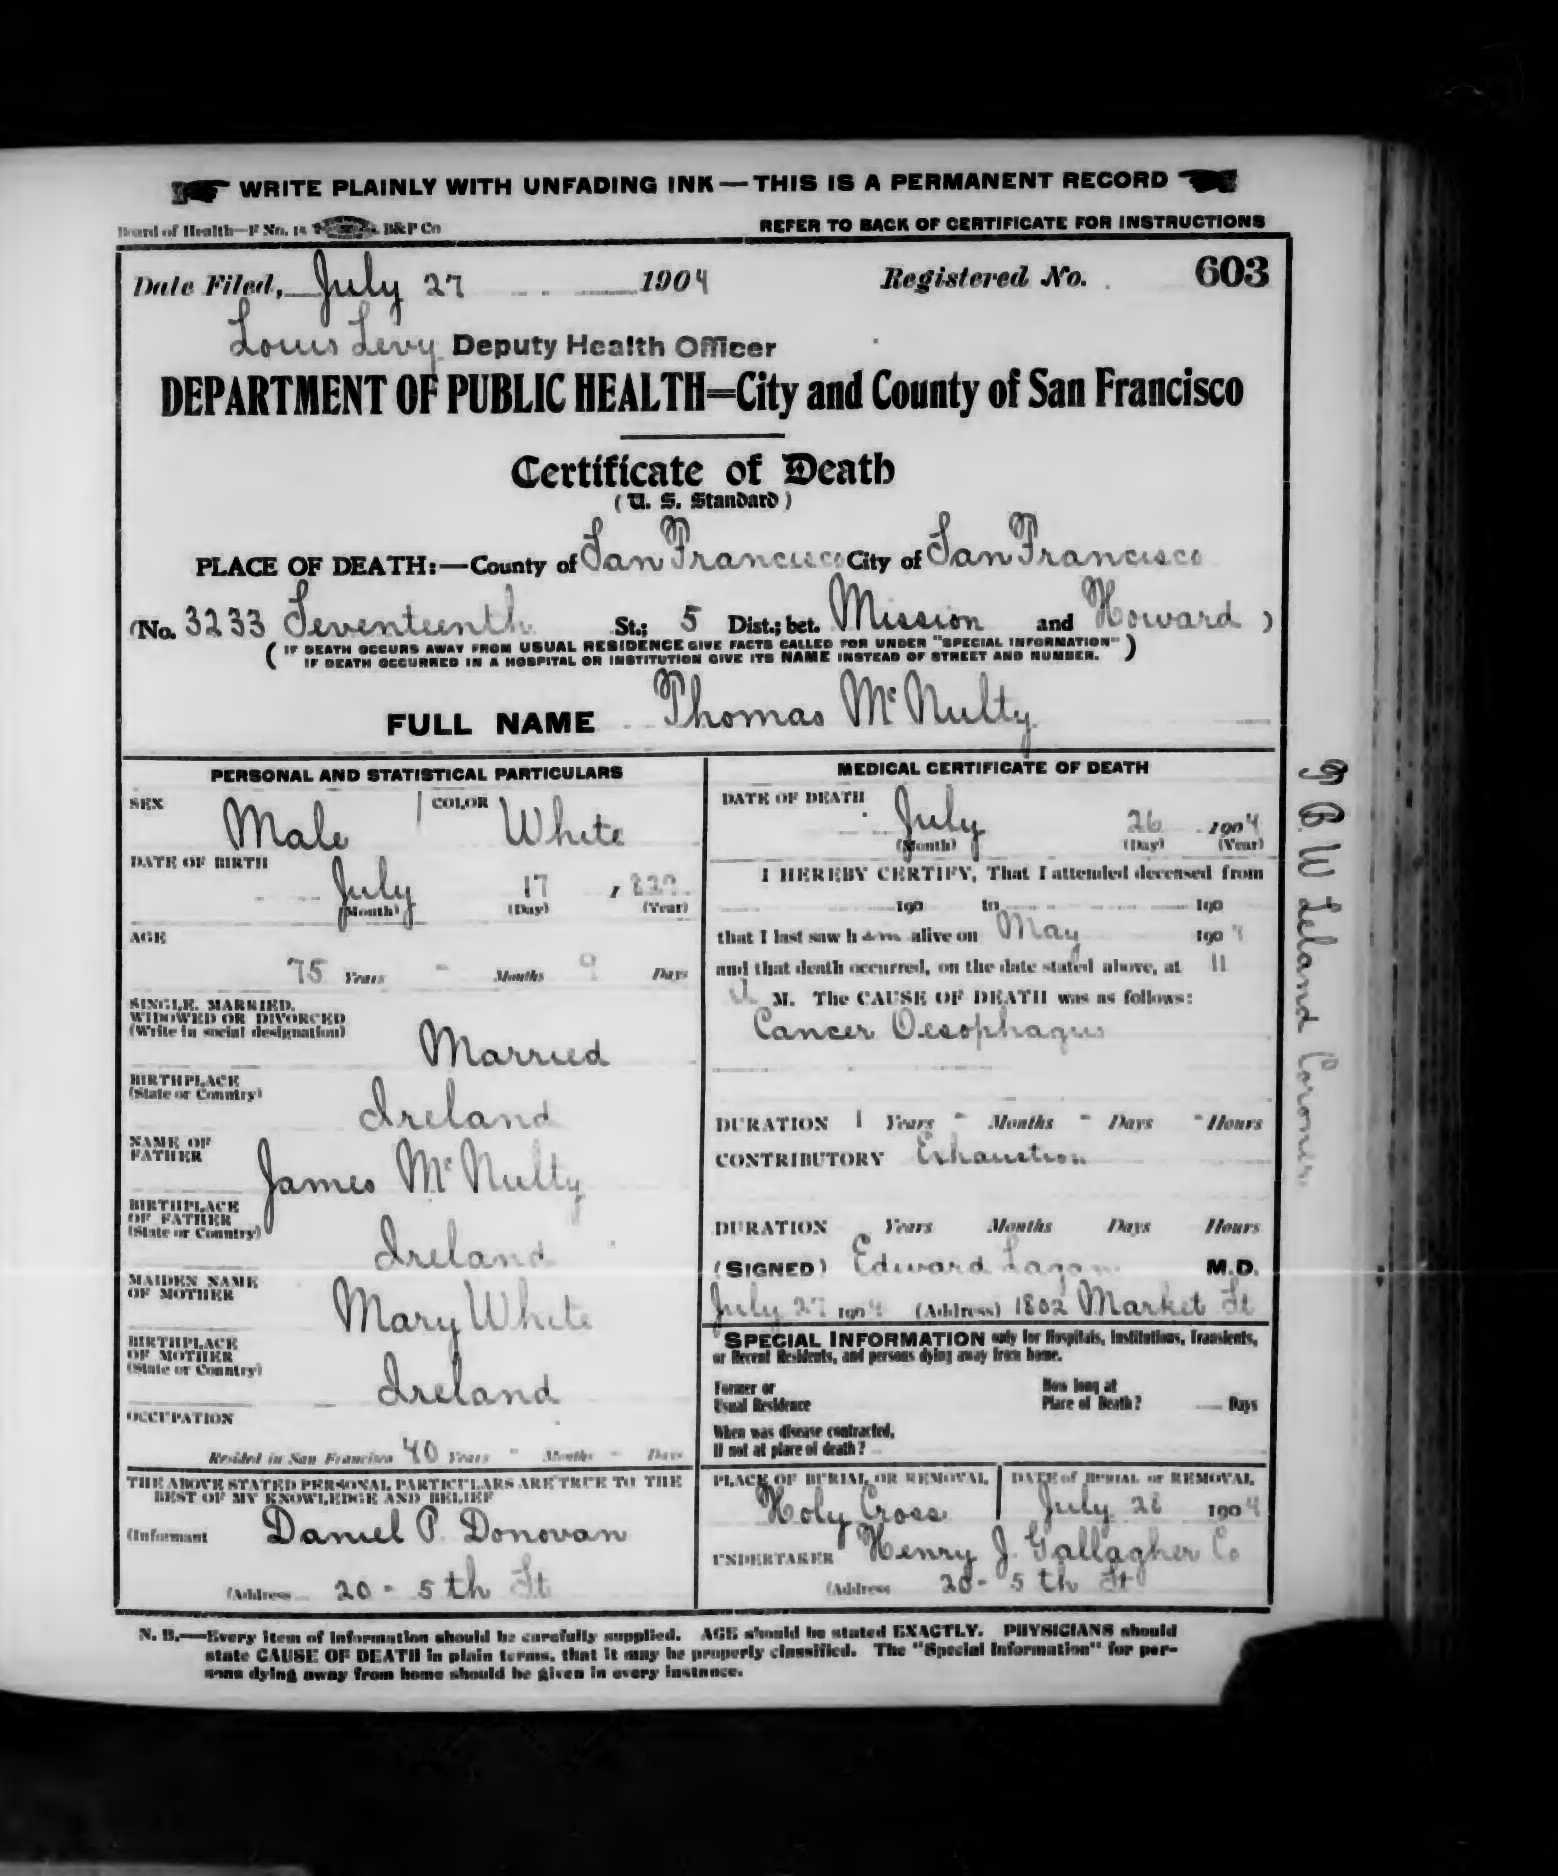 WRITE PLAINLY WITH UNFADING INK—THIS IS A PERMANENT RECORD
Board of Health—F No. 14 B&P Co
REFER TO BACK OF CERTIFICATE FOR INSTRUCTIONS
Date Filed, July 27 1904 Registered No. 603
Louis Levy Deputy Health Officer
DEPARTMENT OF PUBLIC HEALTH=City and County of San Francisco
Certificate of Death
(U. S. Standard)
PLACE OF DEATH:—County of San Francisco City of San Francisco
(No. 3233 Seventeenth St.; 5 Dist.; bet. Mission and Howard )
( IF DEATH OCCURS AWAY FROM USUAL RESIDENCE GIVE FACTS CALLED FOR UNDER "SPECIAL INFORMATION" )
IF DEATH OCCURRED IN A HOSPITAL OR INSTITUTION GIVE ITS NAME INSTEAD OF STREET AND NUMBER.
FULL NAME Thomas McNulty
PERSONAL AND STATISTICAL PARTICULARS
SEX Male COLOR White
DATE OF BIRTH
July 17 , 829
(Month) (Day) (Year)
AGE
75 Years - Months 9 Days
SINGLE, MARRIED,
WIDOWED OR DIVORCED
(Write in social designation)
Married
BIRTHPLACE
(State or Country)
Ireland
NAME OF
FATHER
James McNulty
BIRTHPLACE
OF FATHER
(State or Country)
Ireland
MAIDEN NAME
OF MOTHER
Mary White
BIRTHPLACE
OF MOTHER
(State or Country)
Ireland
OCCUPATION
Resided in San Francisco 40 Years - Months - Days
THE ABOVE STATED PERSONAL PARTICULARS ARE TRUE TO THE
BEST OF MY KNOWLEDGE AND BELIEF
(Informant Daniel P. Donovan
(Address 20 - 5th St
MEDICAL CERTIFICATE OF DEATH
DATE OF DEATH
July 26 1904
(Month) (Day) (Year)
I HEREBY CERTIFY, That I attended deceased from
190 to 190
that I last saw h im alive on May 1904
and that death occurred, on the date stated above, at 11
A M. The CAUSE OF DEATH was as follows:
Cancer Oesophagus
DURATION 1 Years - Months - Days - Hours
CONTRIBUTORY Exhaustion
DURATION Years Months Days Hours
(SIGNED) Edward Lagan M.D.
July 27 1904 (Address) 1802 Market St
SPECIAL INFORMATION only for Hospitals, Institutions, Transients,
or Recent Residents, and persons dying away from home.
Former or
Usual Residence
How long at
Place of Death? Days
When was disease contracted,
If not at place of death?
PLACE OF BURIAL OR REMOVAL
Holy Cross
DATE of BURIAL or REMOVAL
July 28 1904
UNDERTAKER Henry J. Gallagher Co
(Address 20 - 5th St
N. B.—Every item of information should be carefully supplied. AGE should be stated EXACTLY. PHYSICIANS should
state CAUSE OF DEATH in plain terms, that it may be properly classified. The "Special Information" for per-
sons dying away from home should be given in every instance.
B W Leland Coroner